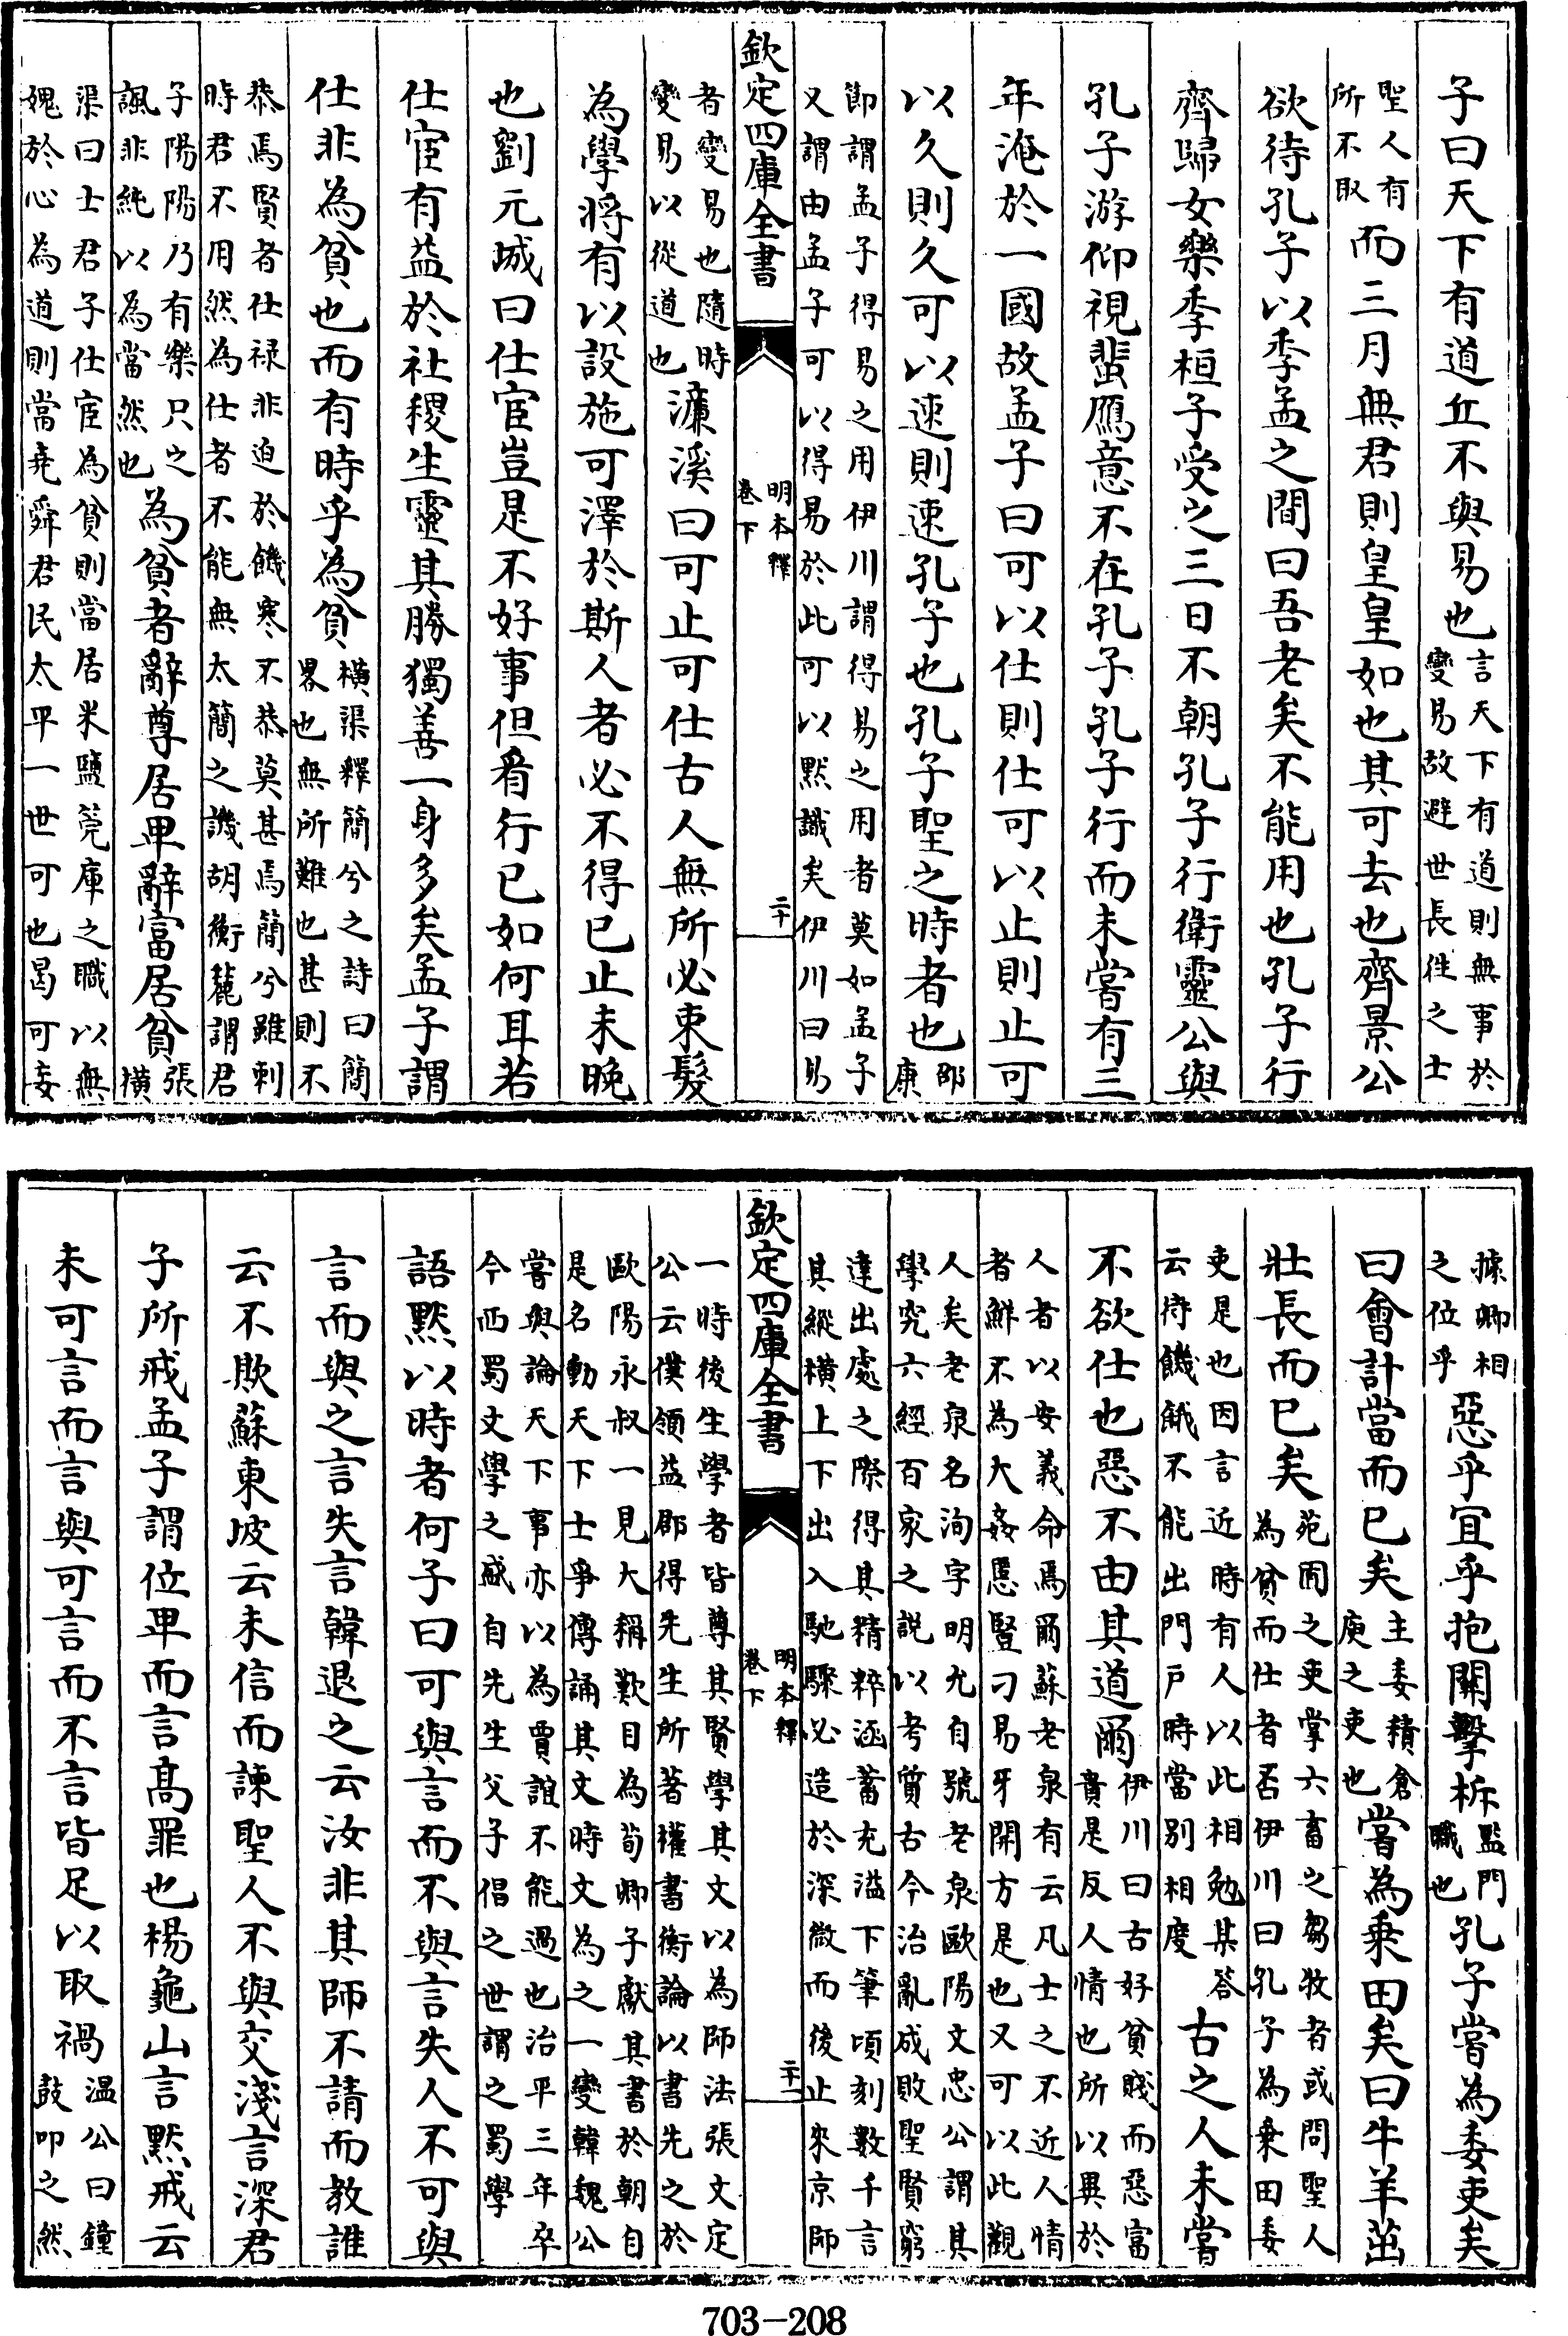 子曰天下有道丘不與易也言天下有道則無事於變易故避世長往之士
聖人有所不取而三月無君則皇皇如也其可去也齊景公
欲待孔子以季孟之間曰吾老矣不能用也孔子行
齊歸女樂季桓子受之三日不朝孔子行衛靈公與
孔子游仰視蜚鴈意不在孔子孔子行而未嘗有三
年淹於一國故孟子曰可以仕則仕可以止則止可
以久則久可以速則速孔子也孔子聖之時者也邵康
節謂孟子得易之用伊川謂得易之用者莫如孟子
又謂由孟子可以得易於此可以默識矣伊川曰易
欽定四庫全書
明本釋
卷下
二十
者變易也隨時變易以從道也濂溪曰可止可仕古人無所必束髮
為學將有以設施可澤於斯人者必不得已止未晚
也劉元城曰仕宦豈是不好事但看行已如何耳若
仕宦有益於社稷生靈其勝獨善一身多矣孟子謂
仕非為貧也而有時乎為貧橫渠釋簡兮之詩曰簡畧也無所難也甚則不
恭焉賢者仕祿非迫於饑寒不恭莫甚焉簡兮雖刺
時君不用然為仕者不能無太簡之譏胡衡麓謂君
子陽陽乃有樂只之諷非純以為當然也為貧者辭尊居卑辭富居貧張橫
渠曰士君子仕宦為貧則當居米鹽筦庫之職以無
媿於心為道則當堯舜君民太平一世可也曷可妄
據卿相之位乎惡乎宜乎抱關擊柝監門職也孔子嘗為委吏矣
曰會計當而已矣主委積倉庾之吏也嘗為乗田矣曰牛羊茁
壯長而已矣苑囿之吏掌六畜之芻牧者或問聖人為貧而仕者否伊川曰孔子為乗田委
吏是也因言近時有人以此相勉某答云待饑餓不能出門戶時當別相度古之人未嘗
不欲仕也惡不由其道爾伊川曰古好貧賤而惡富貴是反人情也所以異於
人者以安義命焉爾蘇老泉有云凡士之不近人情
者鮮不為大姦慝豎刁易牙開方是也又可以此觀
人矣老泉名洵字明允自號老泉歐陽文忠公謂其
學究六經百家之說以考質古今治亂成敗聖賢窮
達出處之際得其精粹涵蓄充溢下筆頃刻數千言
其縱橫上下出入馳驟必造於深微而後止來京師
欽定四庫全書
明本釋
卷下
二十一
一時後生學者皆尊其賢學其文以為師法張文定
公云僕領益郡得先生所著權書衡論以書先之於
歐陽永叔一見大稱歎目為荀卿子獻其書於朝自
是名動天下士爭傳誦其文時文為之一變韓魏公
嘗與論天下事亦以為賈誼不能過也治平三年卒
今西蜀文學之盛自先生父子倡之世謂之蜀學
語默以時者何子曰可與言而不與言失人不可與
言而與之言失言韓退之云汝非其師不請而教誰
云不欺蘇東坡云未信而諫聖人不與交淺言深君
子所戒孟子謂位卑而言高罪也楊龜山言默戒云
未可言而言與可言而不言皆足以取禍温公曰鐘鼓叩之然
703-208